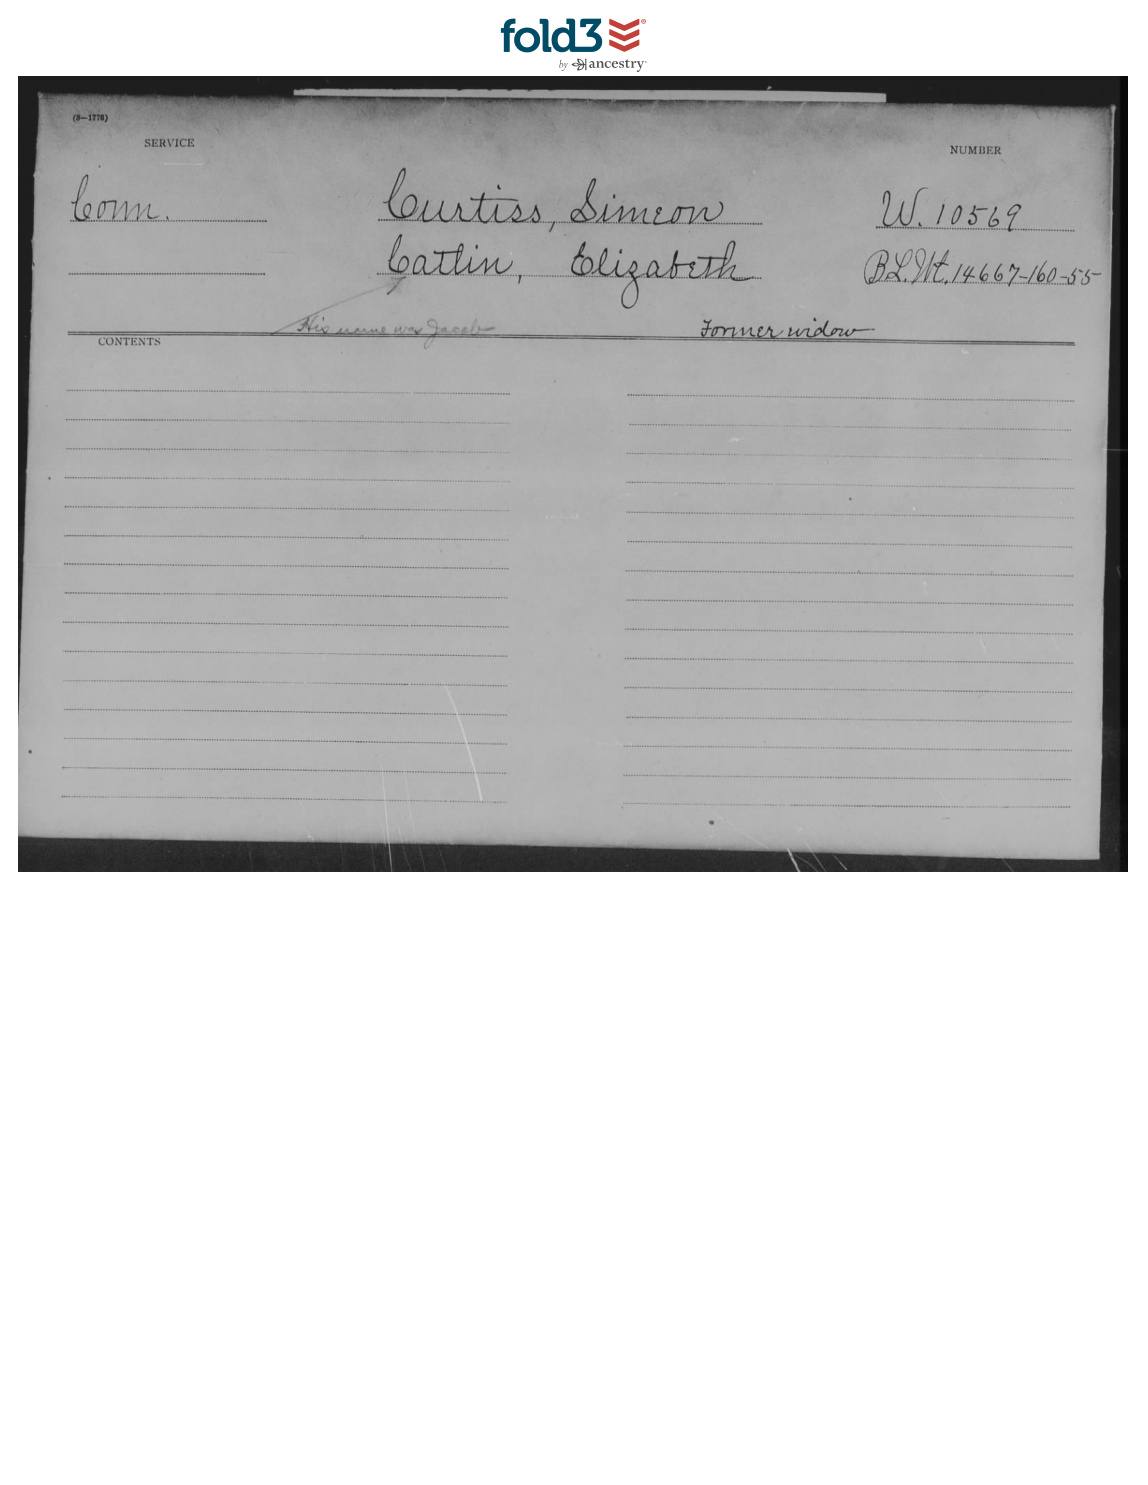 fold3
by ancestry
(3—1778)
SERVICE
NUMBER
Conn.
Curtiss, Simeon
W. 10569
Catlin, Elizabeth
B.L.Wt. 14667-160-55
His name was Jacob
Former widow
CONTENTS